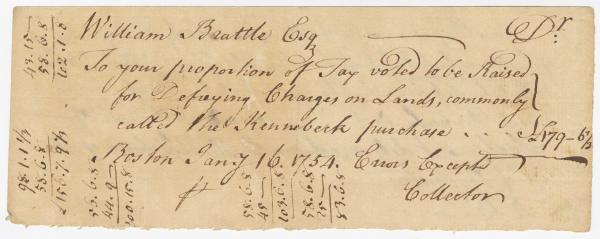 William Brattle Esqr Dr.
To your proportion of Tax voted to be Raised
for Defraying Charges on Lands, commonly
called the Kennebeck purchase . . . £179-6½
Boston Jany 16. 1754. Errors Except
Collector
43.15
58.6.8
102.1.8
98.1.1½
58.6.8
£156.7.9½
58.6.8
44.9
100.15.8
58.6.8
45
103.6.8
58.6.8
25
83.6.8